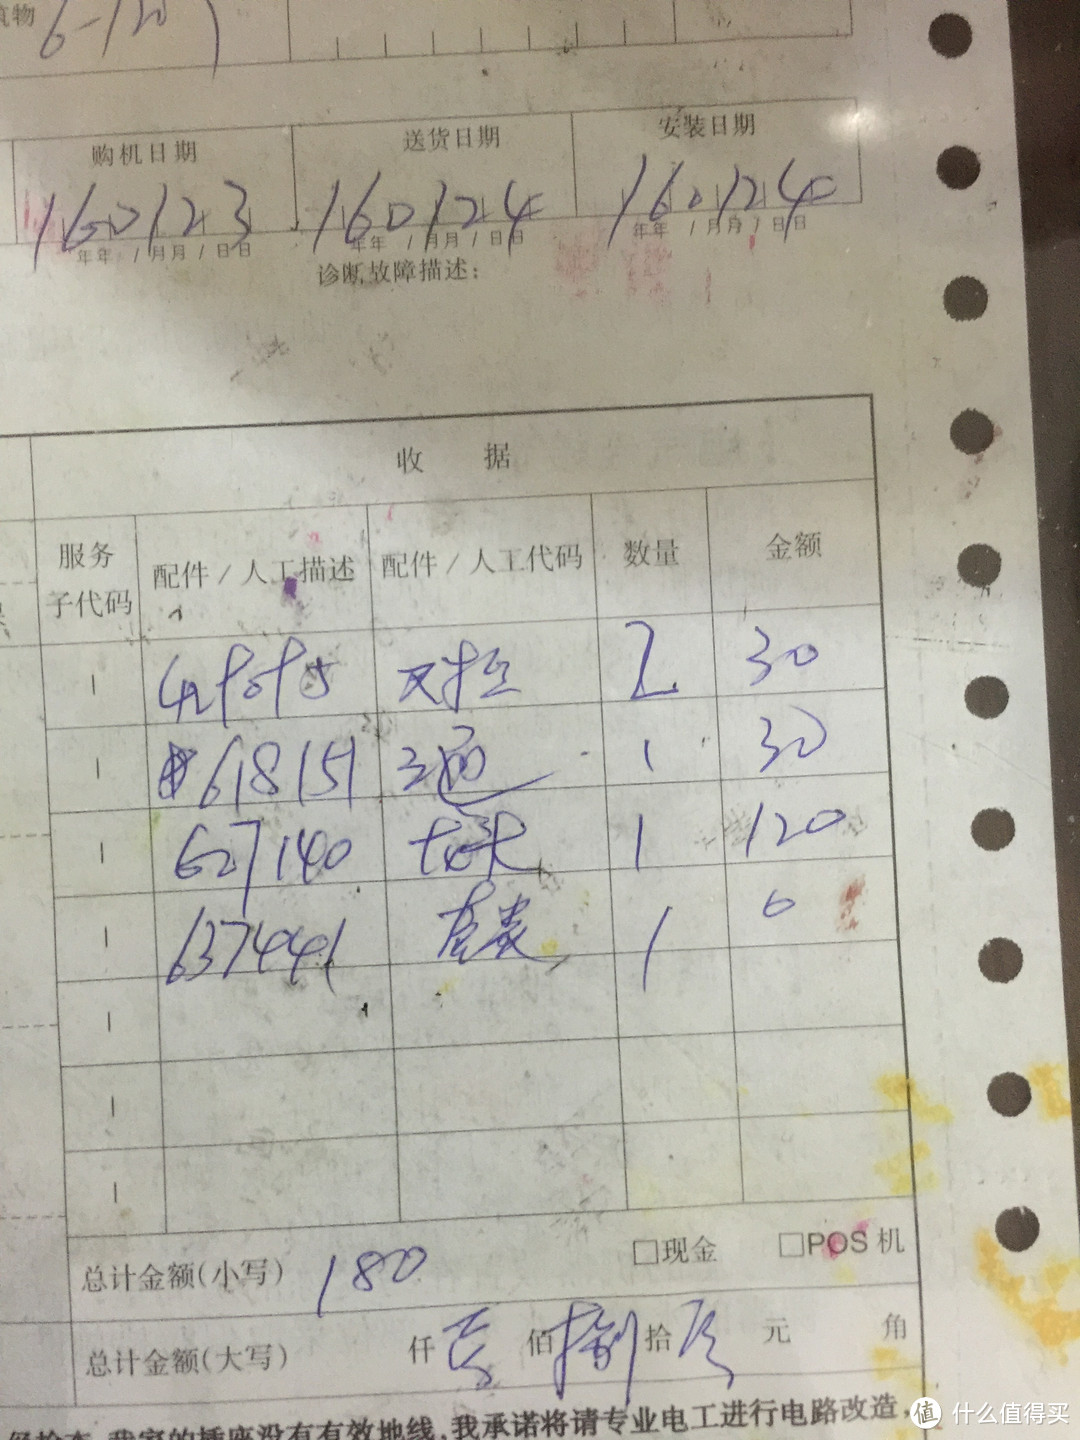 购机日期 送货日期 安装日期
160123 160124 160124
年年/月月/日日 年年/月月/日日 年年/月月/日日
诊断故障描述：
收 据
服务子代码 配件/人工描述 配件/人工代码 数量 金额
1 对拉 2 30
1 618151 三通 1 30
1 627140 龙头 1 120
1 637441 1 0
1
1
1
总计金额(小写) 180 □现金 □POS机
总计金额(大写) 仟 壹 佰 捌 拾 元 角
我家的插座没有有效地线,我承诺将请专业电工进行电路改造，
值 什么值得买